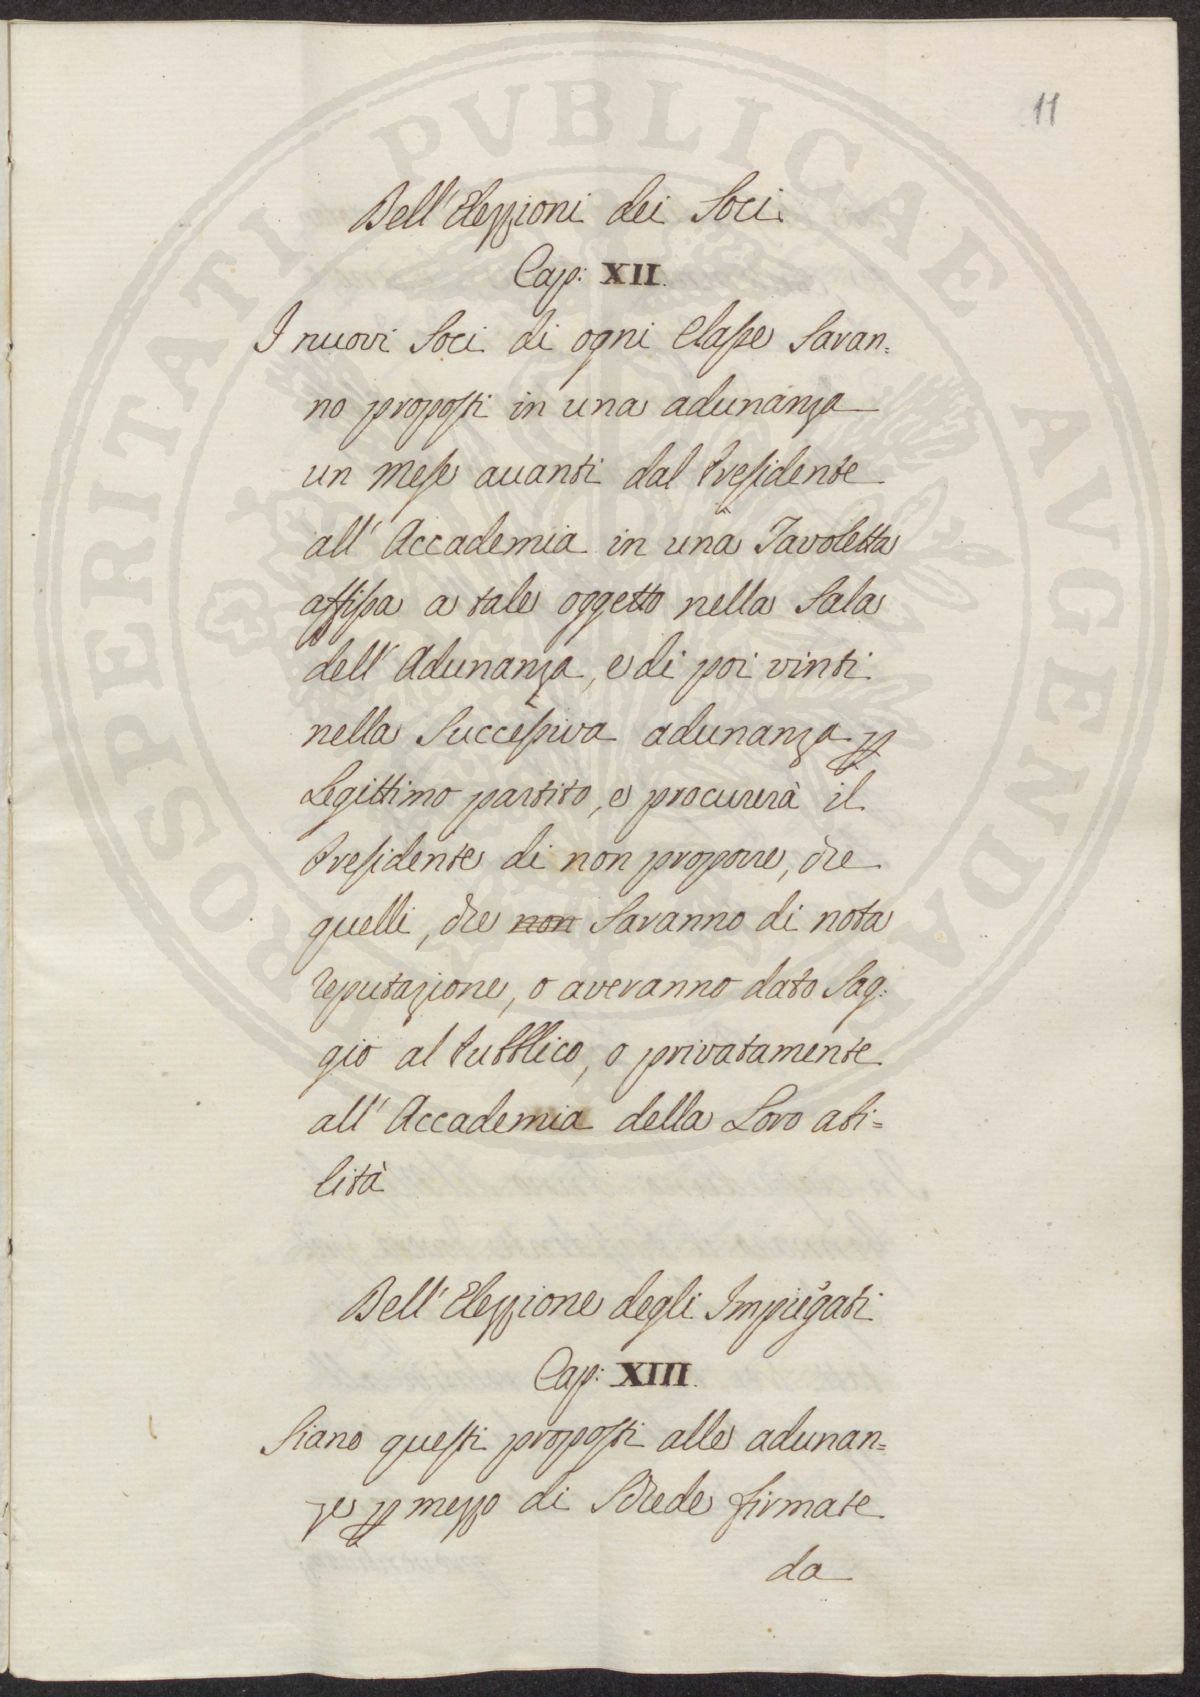 11
Dell'Elezzioni dei Soci
Cap: XII.
I nuovi Soci di ogni Classe saran=
no proposti in una adunanza
un mese auanti dal Presidente
all'Accademia in una Tavoletta
affissa a tale oggetto nella Sala
dell'Adunanza, e di poi vinti
nella Successiva adunanza p
Legittimo partito, e procurerà il
Presidente di non proporre, che
quelli, che non Saranno di nota
reputazione, o averanno dato Sag:
gio al Pubblico, o privatamente
all'Accademia della Loro abi=
lità
Dell'Elezzione degli Impiegati
Cap: XIII.
Siano questi proposti alle adunan=
ze p mezzo di Schede firmate
da
PROSPERITATI PVBLICAE AVGENDAE